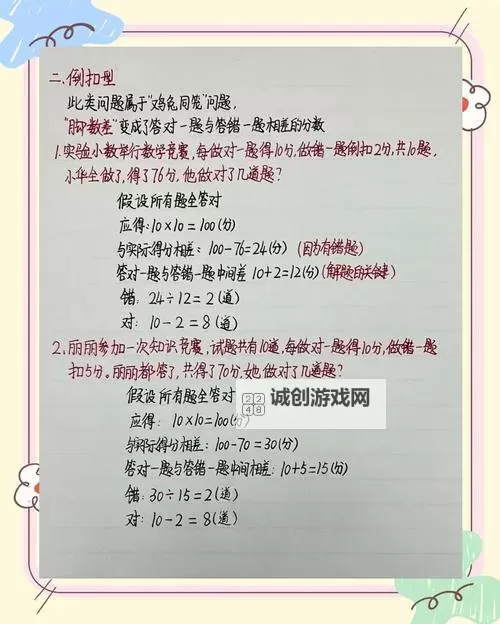 二、倒扣型
此类问题属于“鸡兔同笼”问题,
“脚数差”变成了答对一题与答错一题相差的分数
1.实验小数举行数学竞赛,每做对一题得10分,做错一题倒扣2分,共10题,
小华全做了,得了76分,他做对了几道题?
假设所有题全答对
应得:10×10=100(分)
与实际得分相差:100-76=24(分)(因为有错题)
答对一题与答错一题中间差10+2=12(分)(解题的关键)
错:24÷12=2(道)
对:10-2=8(道)
2.丽丽参加一次知识竞赛,试题共有10道,每做对一题得10分,做错一题
扣5分。丽丽都答了,共得了70分,她做对了几道题?
假设所有题全答对
应得:10×10=100(分)
与实际得分相差:100-70=30(分)
答对一题与答错一题中间相差:10+5=15(分)
错:30÷15=2(道)
对:10-2=8(道)
2248
诚创游戏网